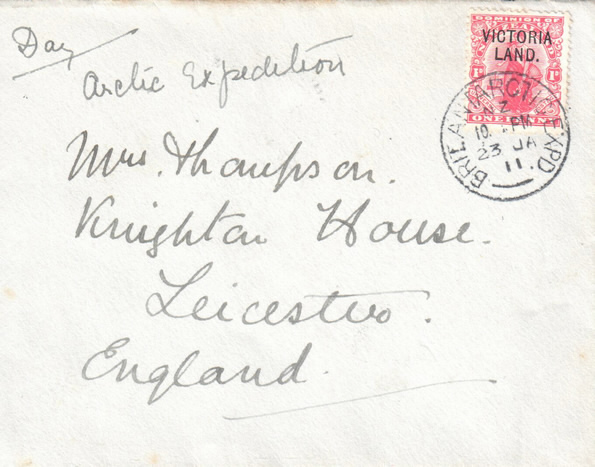 Day
Arctic Expedition
Mrs. Thompson.
Knighton House.
Leicester.
England.
DOMINION OF
VICTORIA
LAND.
1D 1D
ONE PENNY
BRIT. ANTARCTIC EXPD.
NZ
10. PM
23 JA
11